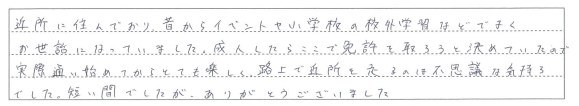 近所に住んでおり、昔からイベントや小学校の校外学習などでよく
お世話になっていました。成人したらここで免許を取ろうと決めていたので
実際通い始めてからとても楽しく、路上で近所を走るのは不思議な気持ち
でした。短い間でしたが、ありがとうございました